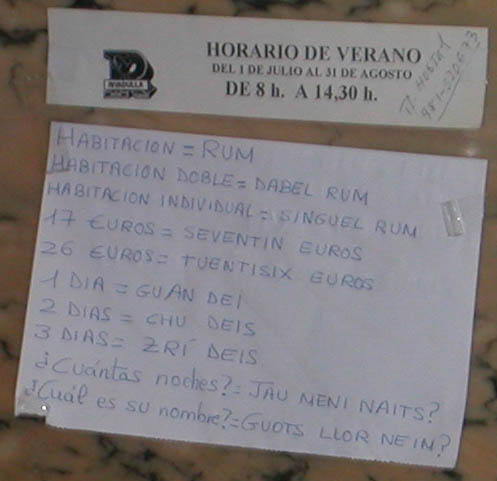 RIVADULLA
HORARIO DE VERANO
DEL 1 DE JULIO AL 31 DE AGOSTO
DE 8 h. A 14,30 h.
HABITACION = RUM
HABITACION DOBLE = DABEL RUM
HABITACION INDIVIDUAL = SINGUEL RUM
17 EUROS = SEVENTIN EUROS
26 EUROS = TUENTISIX EUROS
1 DIA = GUAN DEI
2 DIAS = CHU DEIS
3 DIAS = ZRÍ DEIS
¿Cuántas noches? = JAU MENI NAITS?
¿Cuál es su nombre? = GUOTS LLOR NEIM?